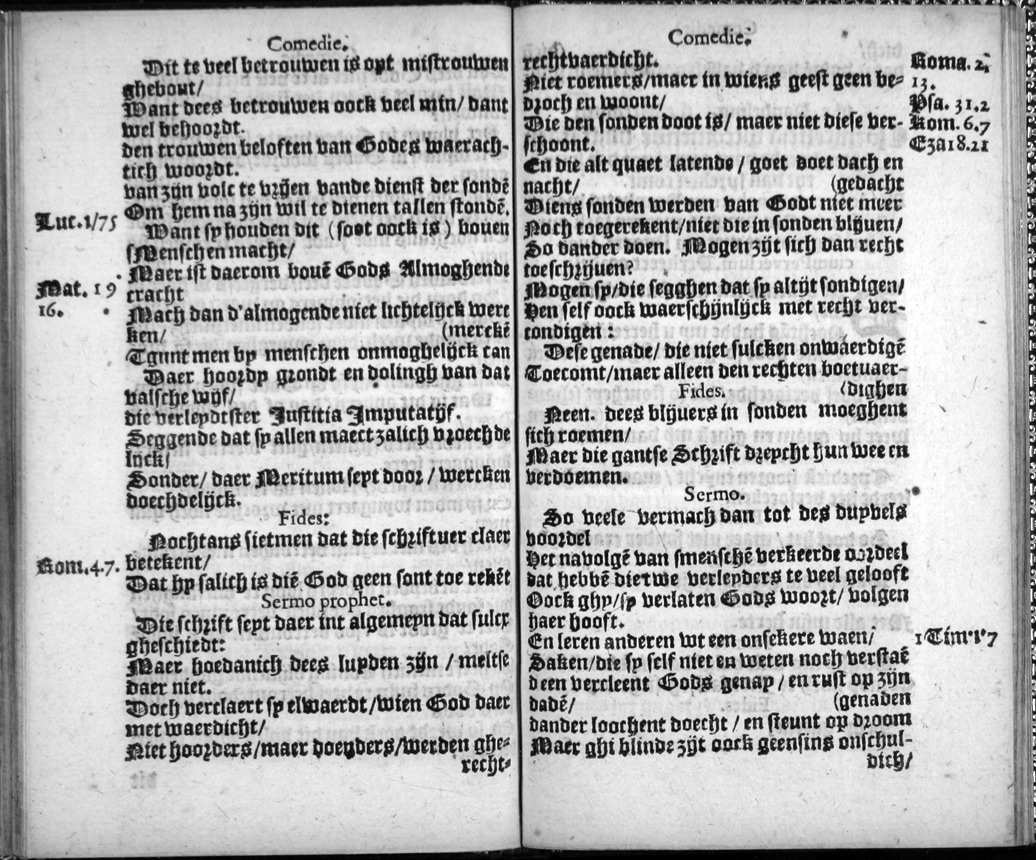 Comedie.
Dit te veel betrouwen is opt mistrouwen
ghebout/
Want dees betrouwen oock veel min/ dant
wel behoordt.
den trouwen beloften van Godes waerach-
tich woordt.
van zijn volc te vrijen vande dienst der sondē
Om hem na zijn wil te dienen tallen stondē.
Luc.1/75
Want sp houden dit (soot oock is) bouen
sMenschen macht/
Maer ist daerom bouē Gods Almoghende
cracht
Mat. 19
16.
Mach dan d'almogende niet lichtelijck werc
ken/ (merckē
Tgunt men by menschen onmoghelijck can
Daer hoordy grondt en dolingh van dat
valsche wijf/
die verleydtster Justitia Imputatijf.
Seggende dat sp allen maect zalich vroechde
lijck/
Sonder/ daer Meritum seyt door/ wercken
doechdelijck.
Fides:
Nochtans sietmen dat die schriftuer claer
betekent/
Rom.4.7.
Dat hy salich is diē God geen sont toe rekēt
Sermo prophet.
Die schrift seyt daer int algemeyn dat sulcx
gheschiedt:
Maer hoedanich dees luyden zijn / meltse
daer niet.
Doch verclaert sp elwaerdt/wien God daer
met waerdicht/
Niet hoorders/maer doenders/werden ghe-
recht-
Comedie.
rechtvaerdicht.
Roma. 2,
13.
Niet roemers/maer in wiens geest geen be-
droch en woont/
Psa. 31.2
Die den sonden doot is/ maer niet diese ver-
schoont.
Rom. 6.7
Eza18.21
En die alt quaet latende/ goet doet dach en
nacht/ (gedacht
Diens sonden werden van Godt niet meer
Noch toegerekent/niet die in sonden blijuen/
So dander doen. Mogen zijt sich dan recht
toeschrijuen?
Mogen sp/die segghen dat sp altijt sondigen/
Hen self oock waerschijnlijck met recht ver-
condigen:
Dese genade/ die niet sulcken onwaerdigē
Toecomt/maer alleen den rechten boetuaer-
Fides. (dighen
Neen. dees blijuers in sonden moeghent
sich roemen/
Maer die gantse Schrift dreycht hun wee en
verdoemen.
Sermo.
So veele vermach dan tot des duyvels
voordel
Het navolgē van smenschē verkeerde oordeel
dat hebbē dietwe verleyders te veel gelooft
Oock ghy/sp verlaten Gods woort/ volgen
haer hooft.
En leren anderen wt een onsekere waen/
1 Tim.1.7
Saken/die sp self niet en weten noch verstaē
deen vercleent Gods genay/ en rust op zijn
dadē/ (genaden
dander loochent doecht / en steunt op droom
Maer ghi blinde zijt oock geensins onschul-
dich/